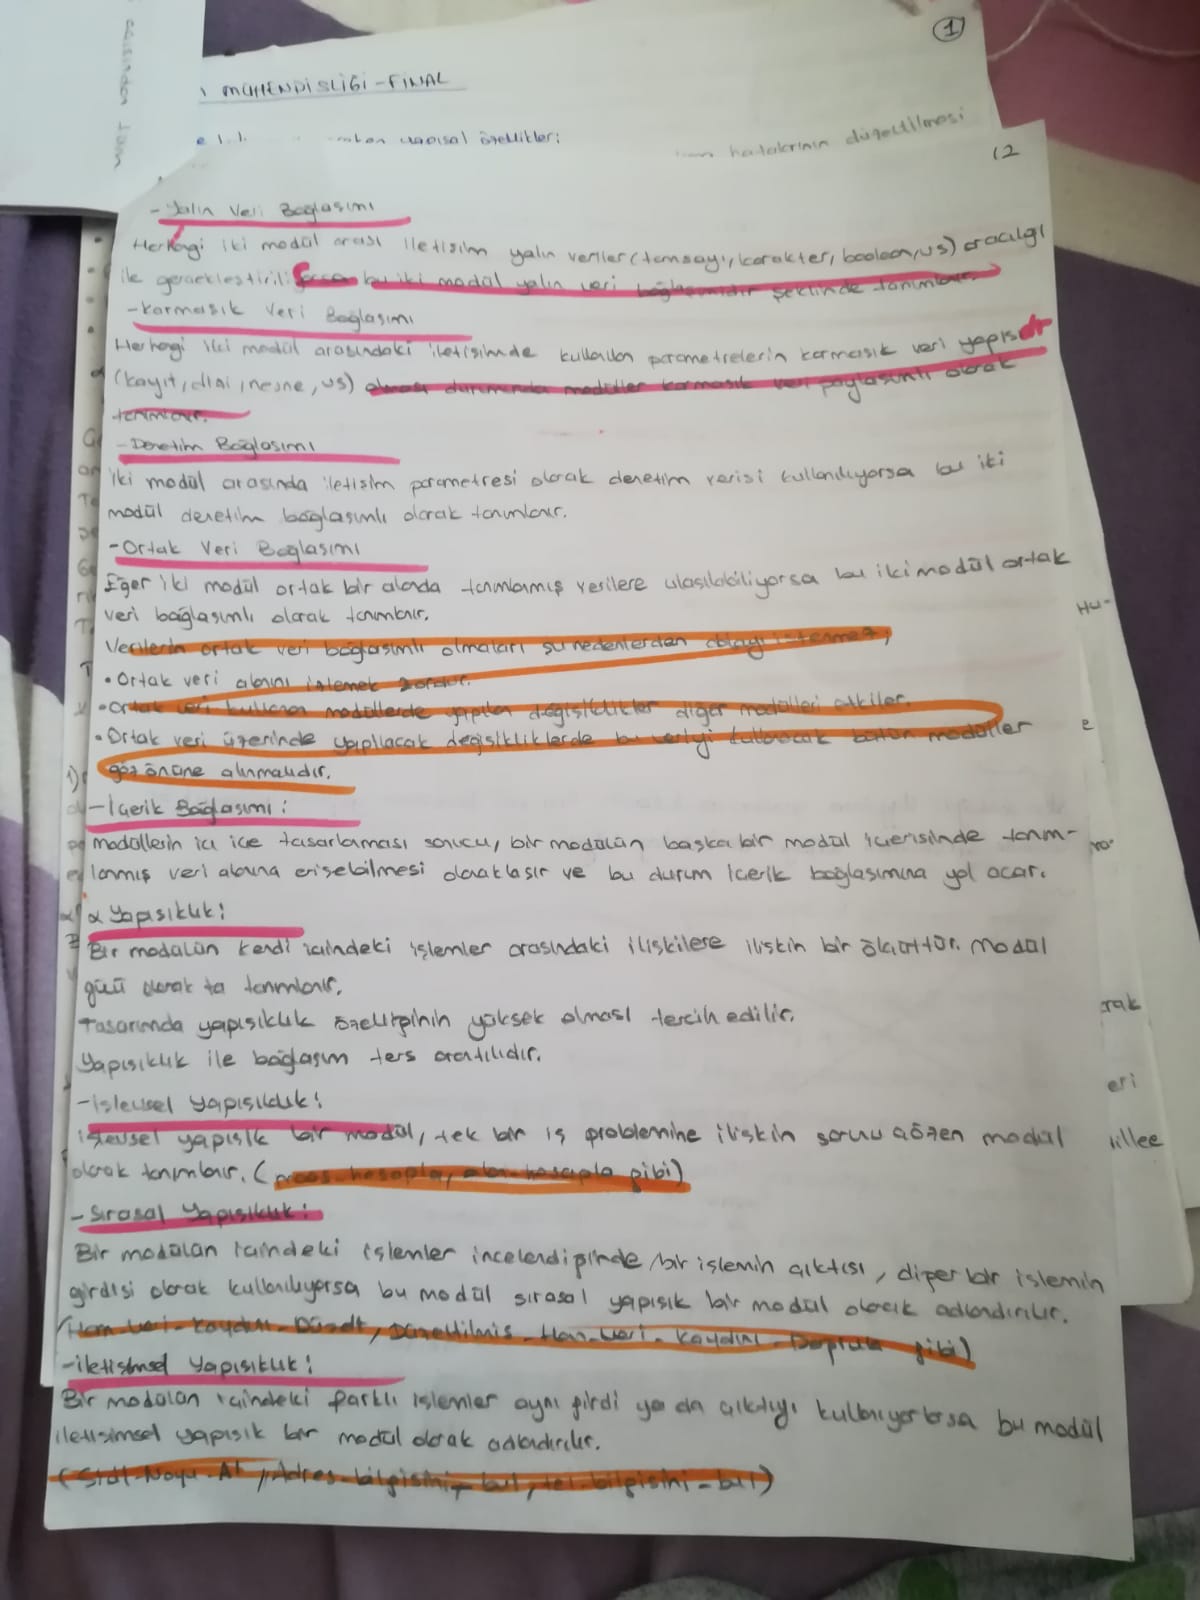 1
MÜHENDİSLİĞİ-FİNAL
yapısal özellikler:
hatalarının düzeltilmesi
12
-Yalın Veri Bağlaşımı
Herhangi iki modül arası iletişim yalın veriler (tamsayı, karakter, boolean, vs) aracılığı
ile gerçekleştiriliyorsa bu iki modül yalın veri bağlaşımlıdır şeklinde tanımlanır.
-Karmaşık Veri Bağlaşımı
Herhangi iki modül arasındaki iletişimde kullanılan parametrelerin karmaşık veri yapısıdır
(kayıt, dizi, nesne, vs) olması durumunda modüller karmaşık veri paylaşımlı olarak
tanımlanır.
-Denetim Bağlaşımı
İki modül arasında iletişim parametresi olarak denetim verisi kullanılıyorsa bu iki
modül denetim bağlaşımlı olarak tanımlanır.
-Ortak Veri Bağlaşımı
Eğer iki modül ortak bir alanda tanımlanmış verilere ulaşılabiliyorsa bu iki modül ortak
veri bağlaşımlı olarak tanımlanır.
Verilerin ortak veri bağlaşımlı olmaları şu nedenlerden dolayı istenmez;
• Ortak veri alanını izlemek zordur.
• Ortak veri kullanan modüllerde yapılan değişiklikler diğer modülleri etkiler.
• Ortak veri üzerinde yapılacak değişikliklerde bu veriyi kullanacak bütün modüller
göz önüne alınmalıdır.
-İçerik Bağlaşımı:
modüllerin iç içe tasarlaması sonucu, bir modülün başka bir modül içerisinde tanım-
lanmış veri alanına erişebilmesi olanaklaşır ve bu durum içerik bağlaşımına yol açar.
α Yapışıklık:
Bir modülün kendi içindeki işlemler arasındaki ilişkilere ilişkin bir ölçüttür. Modül
gücü olarak ta tanımlanır.
Tasarımda yapışıklık özelliğinin yüksek olması tercih edilir.
Yapışıklık ile bağlaşım ters orantılıdır.
-İşlevsel Yapışıklık:
işlevsel yapışık bir modül, tek bir iş problemine ilişkin sorunu çözen modül
olarak tanımlanır. (maas-hesapla, alan-hesapla gibi)
-Sırasal Yapışıklık:
Bir modülün içindeki işlemler incelendiğinde, bir işlemin çıktısı, diğer bir işlemin
girdisi olarak kullanılıyorsa bu modül sırasal yapışık bir modül olarak adlandırılır.
(Ham-Veri-Kaydını-Düzelt, Düzeltilmis-Ham-Veri-Kaydını-Dogrula gibi)
-İletişimsel Yapışıklık:
Bir modülün içindeki farklı işlemler aynı girdi ya da çıktıyı kullanıyorlarsa bu modül
iletişimsel yapışık bir modül olarak adlandırılır.
(Sicil-Noyu-Al, Adres-bilgisini-bul, tel-bilgisini-bul)